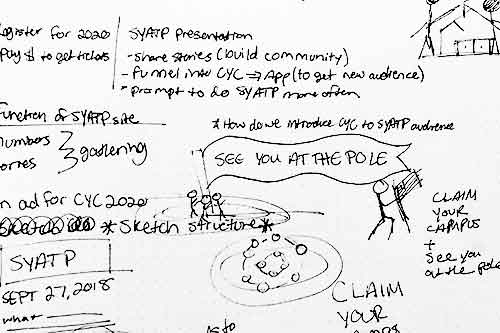 egister for 2020
Pay $ to get tickets
SYATP Presentation
- share stories (build community)
- funnel into CYC → App (to get new audience)
* prompt to do SYATP more often
Function of SYATP site
numbers
gathering
* How do we introduce CYC to SYATP audience
SEE YOU AT THE POLE
n ad for CYC 2020
* Sketch structure *
CLAIM
YOUR
CAMPUS
+
See you
at the pole
SYATP
SEPT 27, 2018
what
CLAIM
YOUR